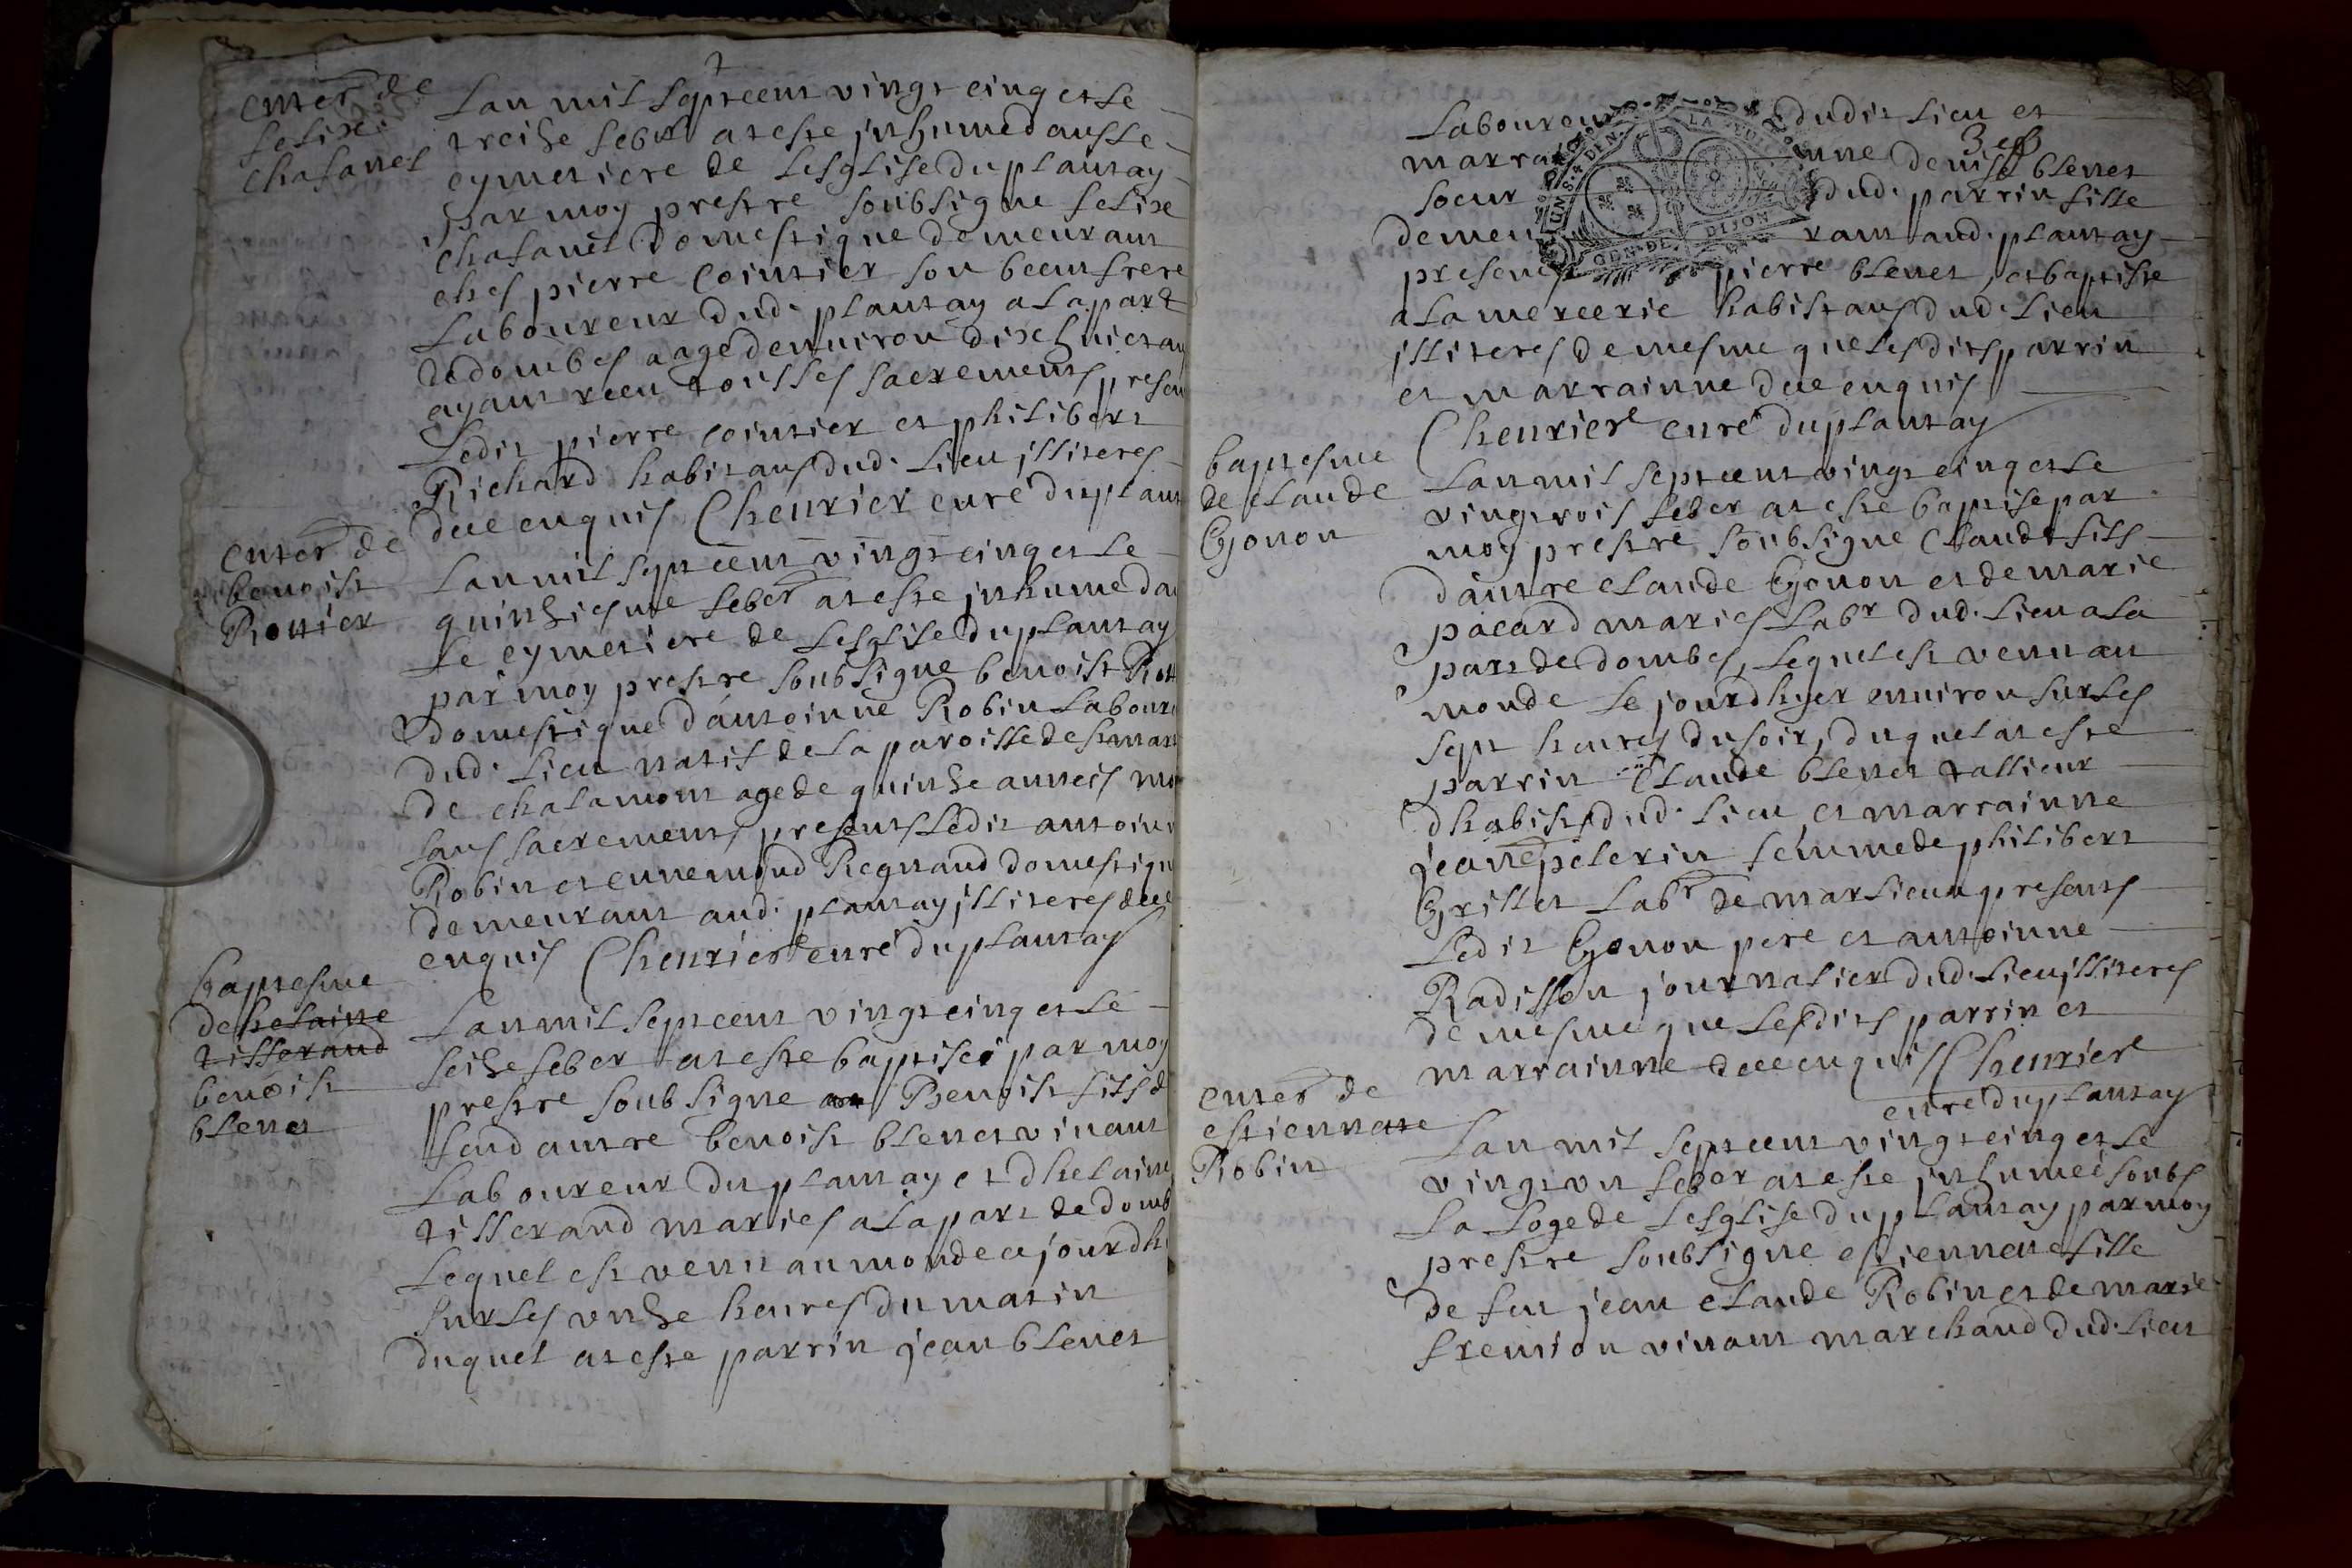 enter de
felix
chafanel
Lan mil septcent vingt cinq et le
treize febr at este inhumé dans le
cymetiere de Lesglise du plantay
par moy prestre soubsigne felix
chafanel domestique demeurant
chez pierre cointier son beau frere
Laboureur dud. plantay a la part
de dombes aage denuiron dixhuict an
ayant receu tous les sacrements presen
Ledit pierre cointier et philibert
Richard habitans dud. Lieu illiteres
deue enquis Cheurier curé du plant
enter de
benoist
Rottier
Lan mil septcent vingt cinq et le
quinziesme feber at este inhume da
Le cymetiere de Lesglise du plantay
par moy prestre soubsigne benoist Rot
domestique dantoinne Robin Laboure
dud. Lieu natif de la paroisse de st mart
de chalamont age de quinze annees mo
sans sacrements presents Ledit antoin
Robin et ennemond Regnaud domestiqu
demeurant aud. plantay illiteres deue
enquis Cheurier curé du plantay
baptesme
de helaine
tisserand
benoist
blenet
Lan mil septcent vingt cinq et le
seize feber at este baptisé par moy
prestre soubsigne Benoist fils d
feu dautre benoist blenet viuant
Laboureur du plantay et dhelaine
tisserand maries a la part de domb
Lequel est venu au monde ce jourdh
sur les unze heures du matin
duquel at este parrin jean blenet
Laboureur dudit Lieu et
3 eb
marra inne denise blenet
soeur dud. parrin fille
demeu rant aud. plantay
presenc pierre blenet, et baptiste
a la mercerie habitans dud. Lieu
illiteres de mesme que les dits parrin
et marrainne deue enquis
Cheurier curé du plantay
baptesme
de claude
Gonon
Lan mil septcent vingt cinq et le
vingtrois feber at este baptise par
moy prestre soubsigne Claude fils
dautre claude Gonon et de marie
pacard maries Labr dud. Lieu a la
part de dombes, Lequel est venu au
monde le jourdhyer enuiron sur les
sept heures du soir, duquel at este
parrin Claude blenet tallieur
dhabits dud. Lieu et marrainne
jeane pelerin femme de philibert
Grillet Labr de marlieu presents
Ledit Gonon pere et antoinne
Radisson journalier dud. Lieu illiteres
de mesme que Lesdits parrin et
marrainne deue enquis Cheurier
curé du plantay
enter de
estiennete
Robin
Lan mil septcent vingt cinq et le
vingt un feber at este inhumeé soubs
La Loge de Lesglise du plantay par moy
prestre soubsigne estiennete fille
de feu jean claude Robin et de marie
freution viuant marchand dud. Lieu
GEN. DE. DIJON